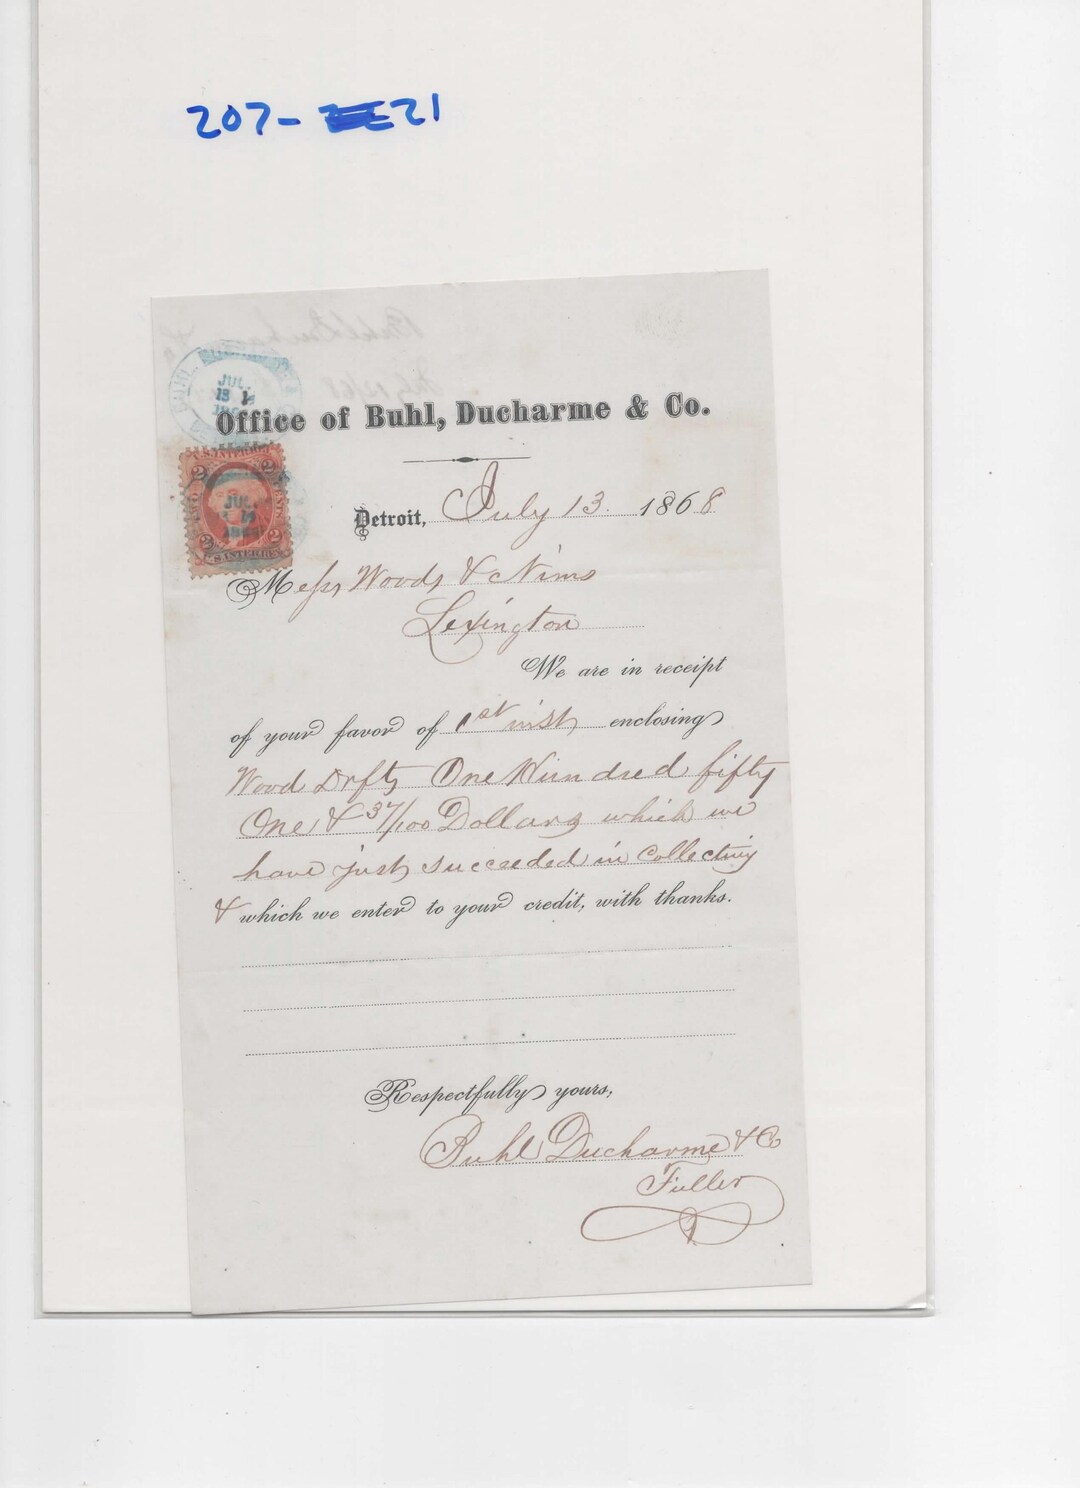 207- 21
BUHL
JUL.
13
Office of Buhl, Ducharme & Co.
U.S. INTER. REV.
2 2
TWO CENTS
JUL.
2 2
U.S. INTER. REV.
Detroit, July 13. 1868
Messrs Woods & Nims
Lexington
We are in receipt
of your favor of 1st inst, enclosing
Wood Drfts One Hundred fifty
One & 37/100 Dollars which we
have just succeeded in Collecting
& which we enter to your credit, with thanks.
Respectfully yours,
Buhl Ducharme & Co
Fuller